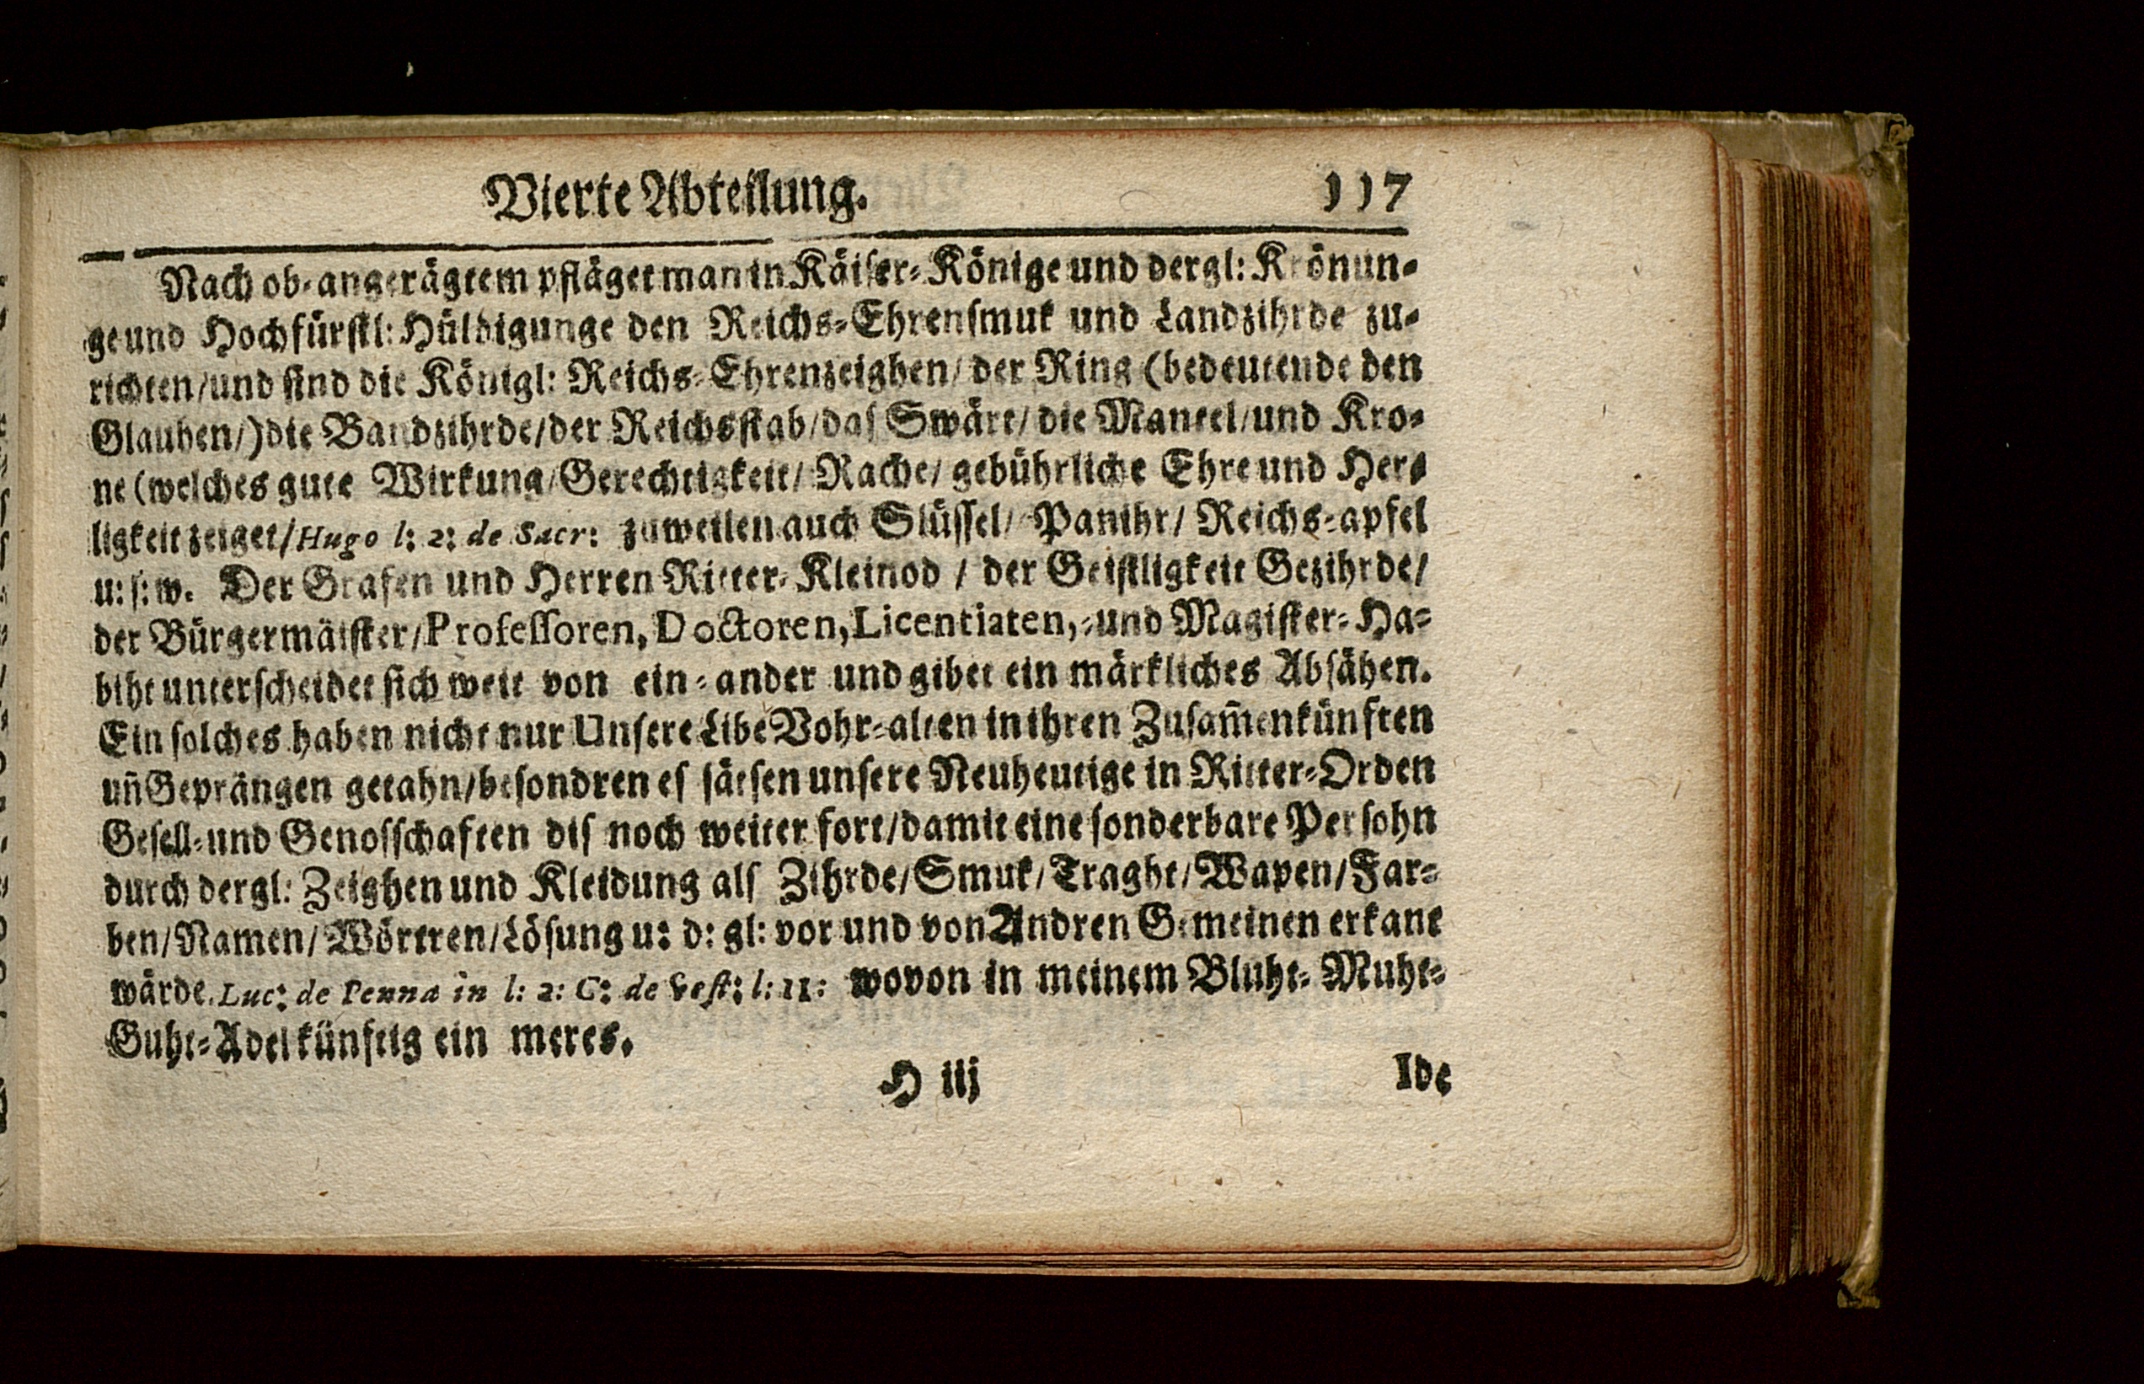 Vierte Abteilung. 117
Nach ob-angerägtem pfläget man in Käiser-Könige und dergl: Krönun-
ge und Hochfürstl: Hüldigunge den Reichs-Ehrensmuk und Landzihrde zu-
richten/und sind die Königl: Reichs-Ehrenzeighen/ der Ring (bedeutende den
Glauben/) die Bandzihrde/der Reichsstab/das Swärt/ die Mantel/und Kro-
ne (welches gute Wirkung/Gerechtigkeit/ Rache/ gebührliche Ehre und Her-
ligkeit zeiget/Hugo l: 2: de Sacr: zuweilen auch Slüssel/ Panihr/ Reichs-apfel
u: s: w. Der Grafen und Herren Ritter-Kleinod / der Geistligkeit Gezihrde/
der Bürgermäister/Professoren, Doctoren, Licentiaten,-und Magister-Ha-
biht unterscheidet sich weit von ein-ander und gibet ein märkliches Absähen.
Ein solches haben nicht nur Unsere Libe Vohr-alten in ihren Zusam̃enkünften
uñ Geprängen getahn/besondren es sätsen unsere Neuheutige in Ritter-Orden
Gesell-und Genosschaften dis noch weiter fort/damit eine sonderbare Persohn
durch dergl: Zeighen und Kleidung als Zihrde/Smuk/Traght/Wapen/Far-
ben/Namen/Wörtren/Lösung u: d: gl: vor und von Andren Gemeinen erkant
wärde. Luc: de Penna in l: 2: C: de Vest: l: 11: wovon in meinem Bluht-Muht-
Guht-Adel künftig ein meres.
H iij Ide